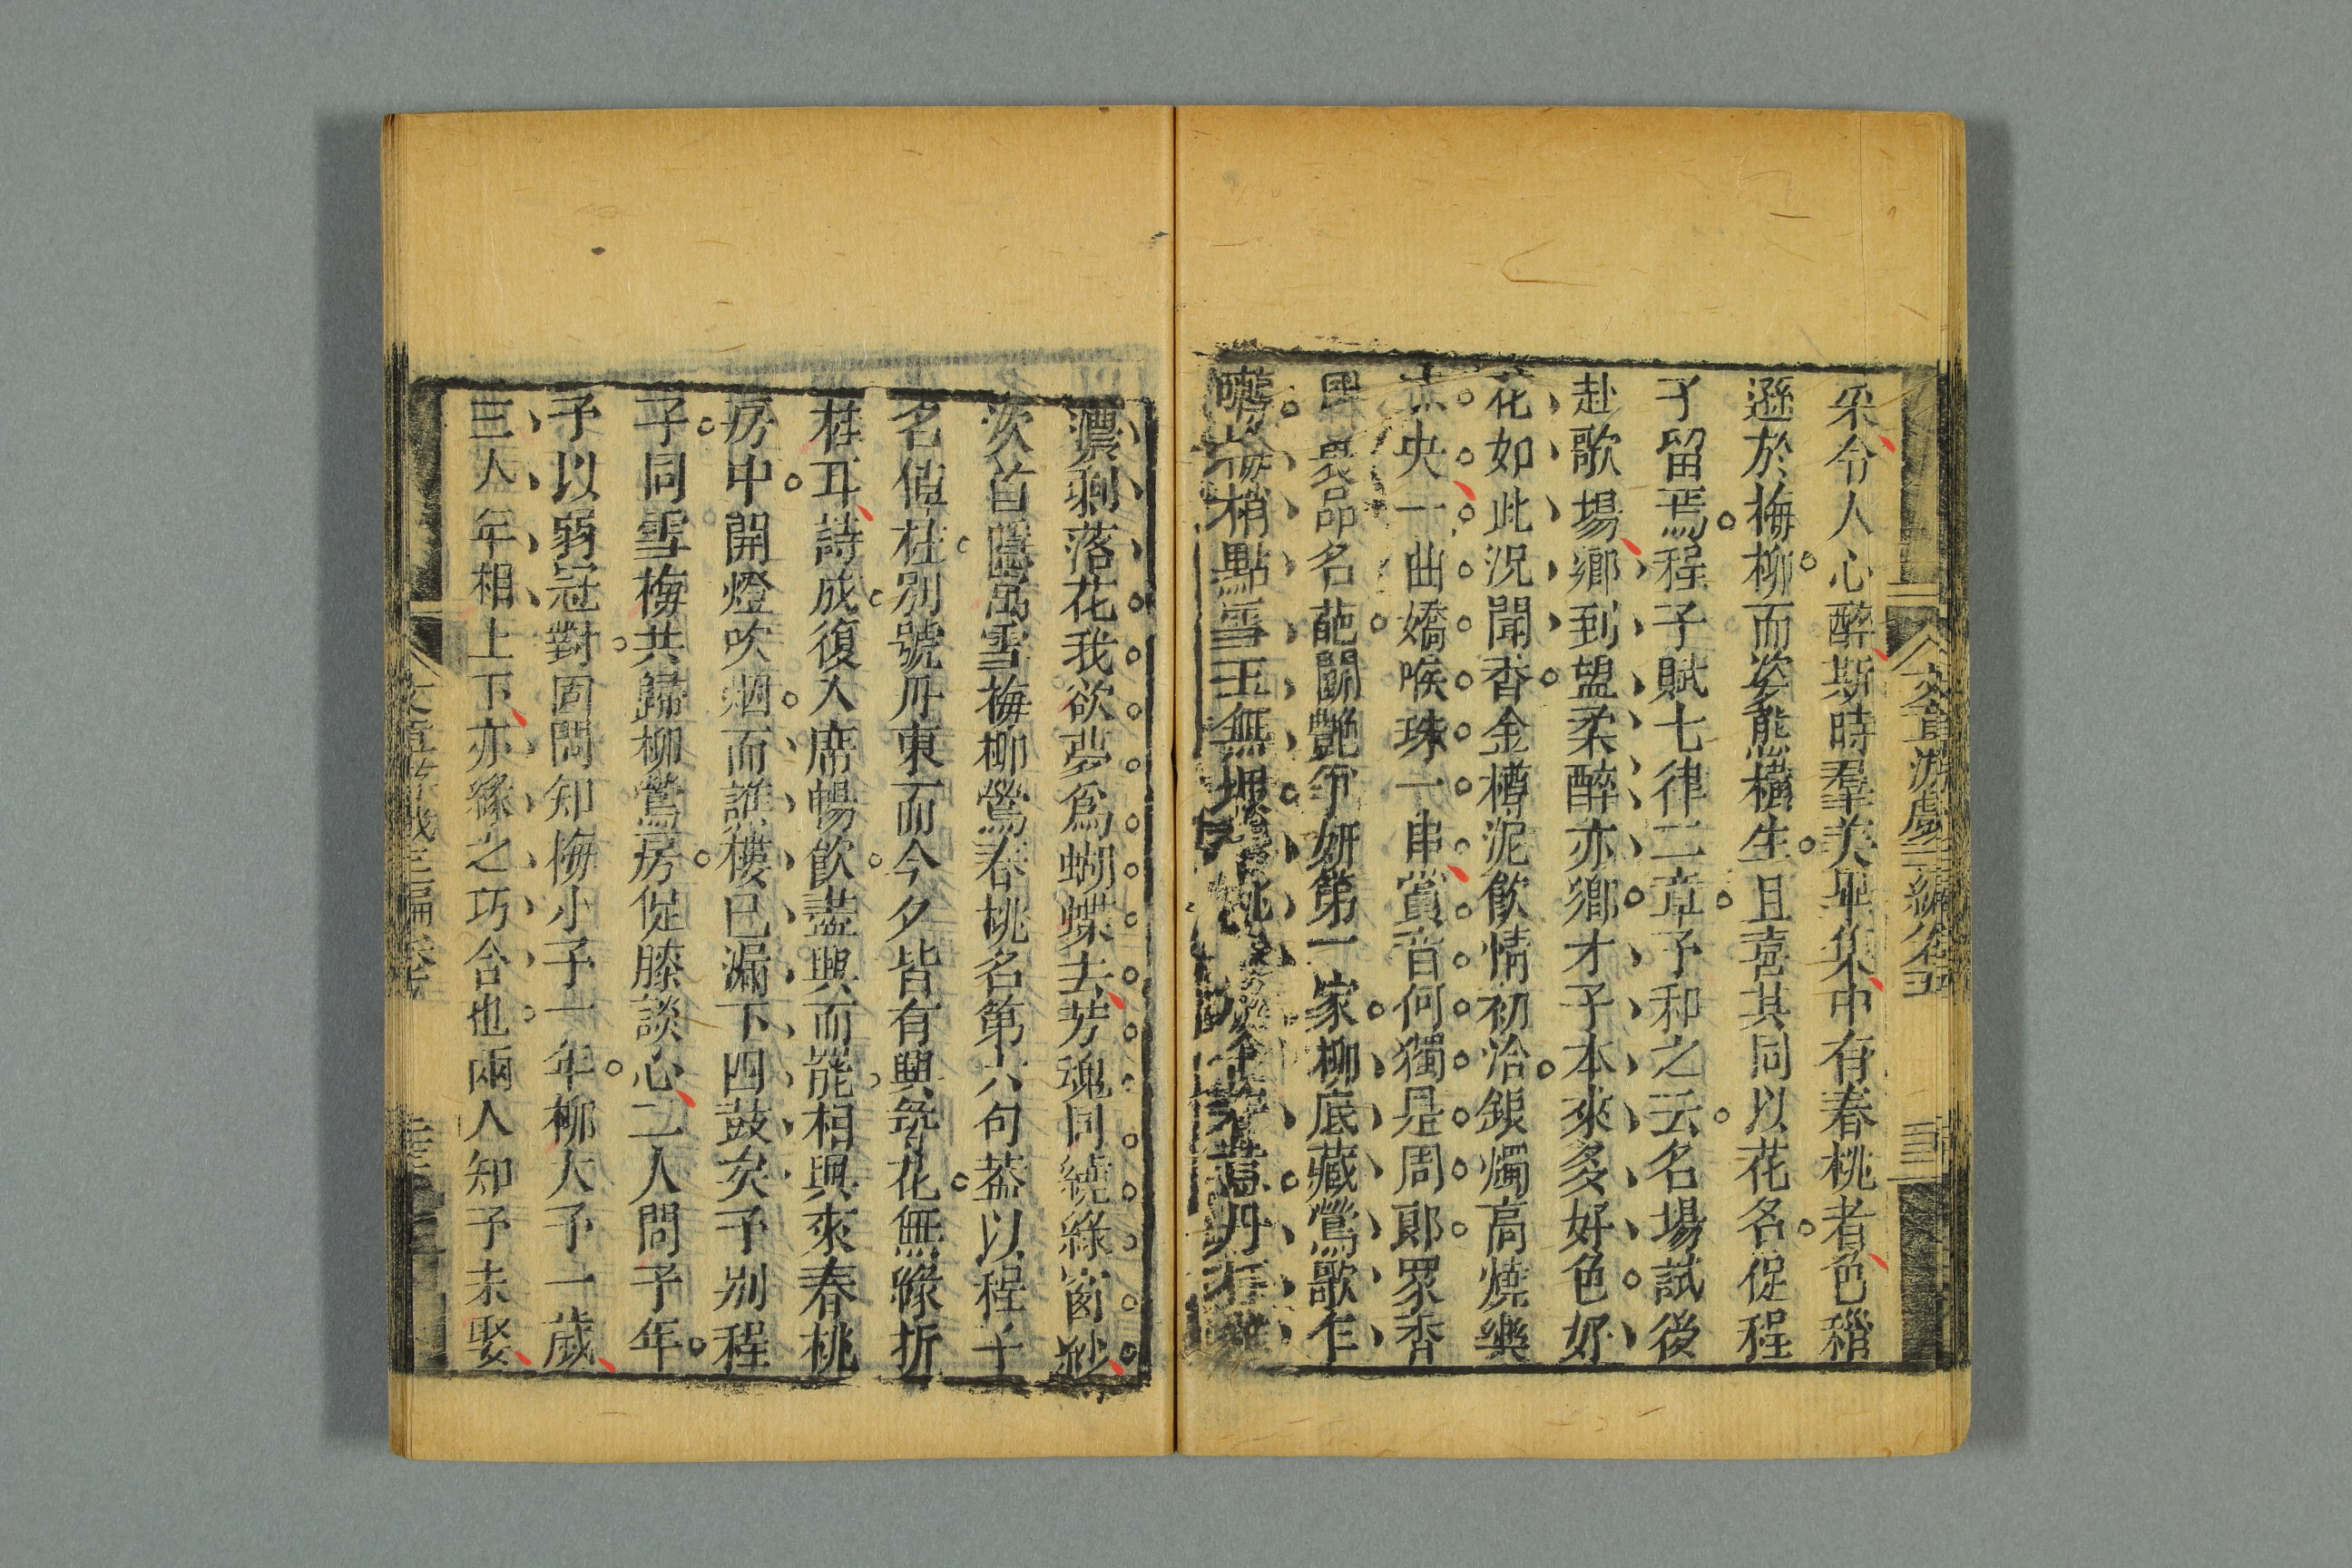 文章游戲三編卷五
采令人心醉斯時羣美畢集中有春桃者色稍
遜於梅柳而姿態橫生且喜其同以花名促程
子留焉程子賦七律二章予和之云名場試後
赴歌場鄉到盟柔醉亦鄉才子本來多好色好
花如此況聞香金樽泥飲情初洽銀燭高燒樂
未央一曲嬌喉珠一串賞音何獨是周郎眾香
國裏品名葩鬭艷爭妍第一家柳底藏鶯歌乍
囀梅梢點雪玉無
濃剩落花我欲夢為蝴蝶去芳魂同繞綠窗紗
次首隱寓雪梅柳鶯春桃名第六句蓋以程子
名值桂別號丹東而今夕皆有興與花無緣折
桂耳詩成復入席暢飲盡興而罷相與來春桃
房中開燈吹烟而譙樓已漏下四鼓矣予別程
子同雪梅共歸柳鶯房促膝談心二人問予年
予以弱冠對固問知梅小予一年柳大予一歲
三人年相上下亦緣之巧合也兩人知予未娶
文章游戲三編卷五